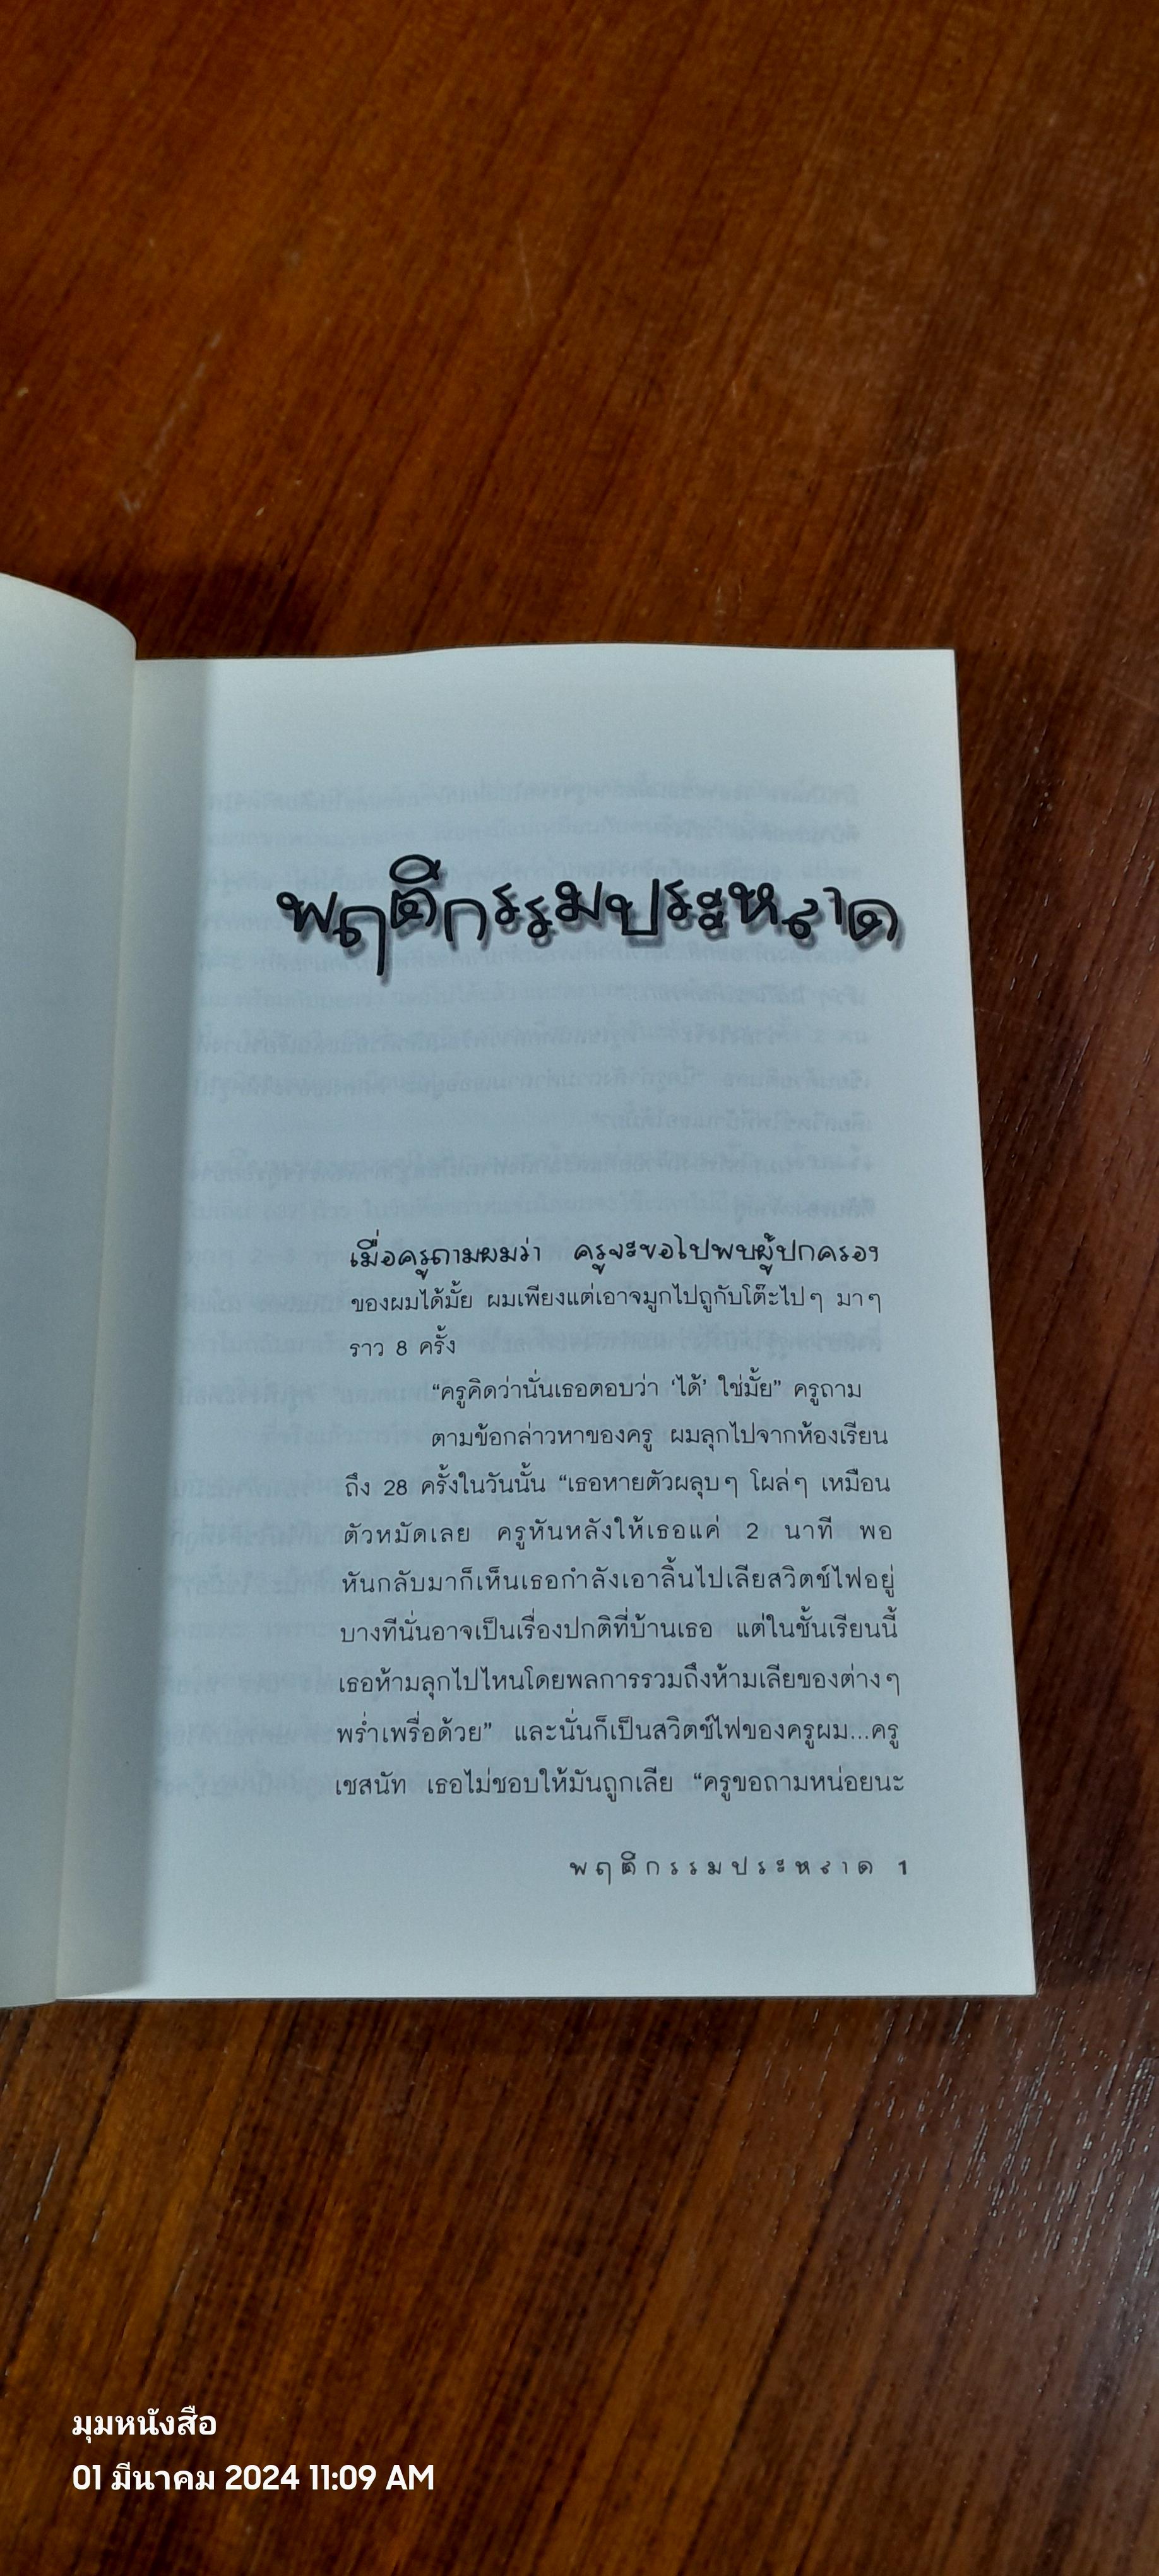 พฤติกรรมประหลาด
เมื่อครูถามผมว่า ครูจะขอไปพบผู้ปกครอง
ของผมได้มั้ย ผมเพียงแต่เอาจมูกไปถูกับโต๊ะไปๆ มาๆ
ราว 8 ครั้ง
“ครูคิดว่านั่นเธอตอบว่า ‘ได้’ ใช่มั้ย” ครูถาม
ตามข้อกล่าวหาของครู ผมลุกไปจากห้องเรียน
ถึง 28 ครั้งในวันนั้น “เธอหายตัวผลุบๆ โผล่ๆ เหมือน
ตัวหมัดเลย ครูหันหลังให้เธอแค่ 2 นาที พอ
หันกลับมาก็เห็นเธอกำลังเอาลิ้นไปเลียสวิตช์ไฟอยู่
บางทีนั่นอาจเป็นเรื่องปกติที่บ้านเธอ แต่ในชั้นเรียนนี้
เธอห้ามลุกไปไหนโดยพลการรวมถึงห้ามเลียของต่างๆ
พร่ำเพรื่อด้วย” และนั่นก็เป็นสวิตช์ไฟของครูผม...ครู
เชสนัท เธอไม่ชอบให้มันถูกเลีย “ครูขอถามหน่อยนะ
พฤติกรรมประหลาด 1
มุมหนังสือ
01 มีนาคม 2024 11:09 AM